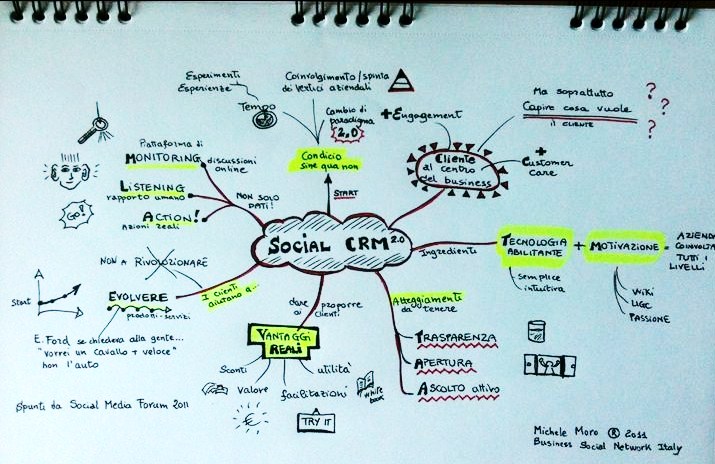 Esperimenti
Esperienze
Tempo
Coinvolgimento/spinta
dei vertici aziendali
Cambio di
paradigma
2.0
Condicio
sine qua non
START
+Engagement
Ma soprattutto
Capire cosa vuole
il CLIENTE
? ? ?
Cliente
al centro
del business
+
Customer
care
Piattaforma di
MONITORING
discussioni
online
LISTENING
rapporto umano
ACTION!
Azioni Reali
NON SOLO
DATI!
GO!
SOCIAL CRM 2.0
Ingredienti
TECNOLOGIA
ABILITANTE
+
MOTIVAZIONE
=
AZIENDA
COINVOLTA
TUTTI I
LIVELLI
semplice
intuitiva
WIKI
UGC
PASSIONE
NON A RIVOLUZIONARE
Start
EVOLVERE
prodotti-servizi
I clienti
aiutano a...
E. Ford, se chiedeva alla gente...
"vorrei un cavallo + veloce"
non l'auto
dare
ai
proporre
clienti
VANTAGGI
REALI
Sconti
valore
facilitazioni
utilità
White
book
TRY IT
€
Atteggiamenti
da tenere
TRASPARENZA
APERTURA
ASCOLTO attivo
Spunti da Social Media Forum 2011
Michele Moro ® 2011
Business Social Network Italy